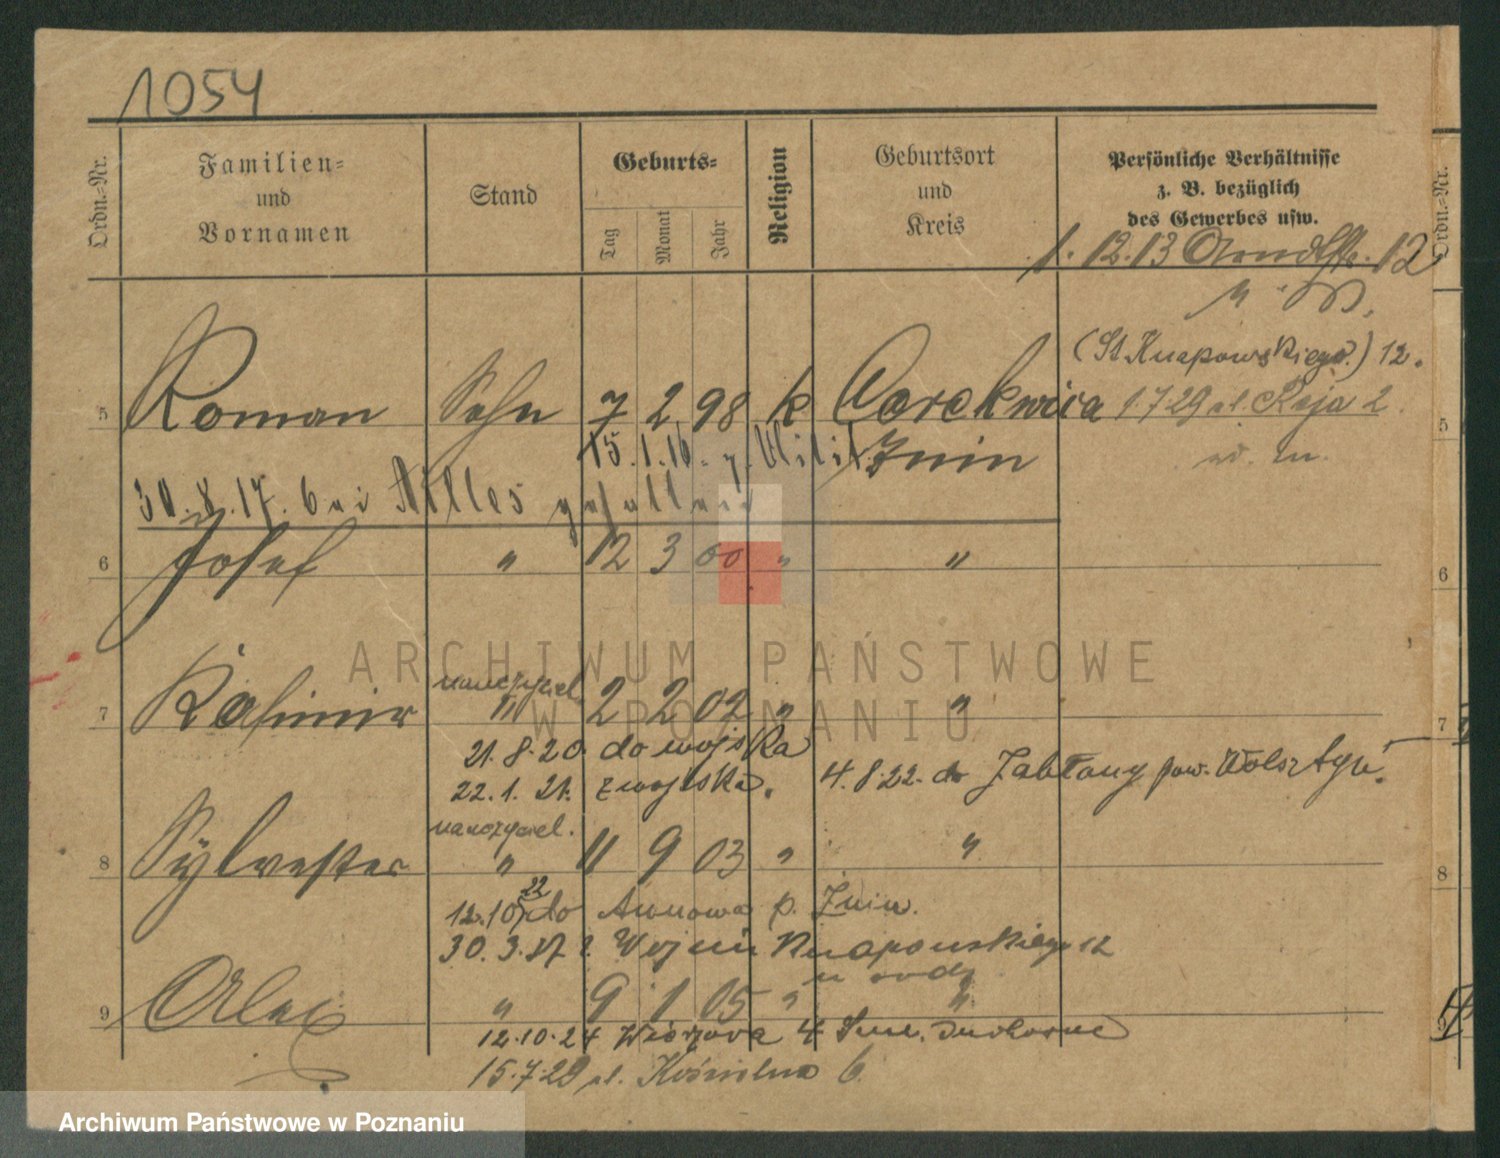 1054
Ordn.-Nr.
Familien-
und
Vornamen
Stand
Geburts-
Tag
Monat
Jahr
Religion
Geburtsort
und
Kreis
Persönliche Verhältnisse
z. B. bezüglich
des Gewerbes usw.
Ordn.-Nr.
1. 12. 13 Arndtstr. 12
(St. Knapowskiego.) 12.
5 Roman Sohn 7 2 98 k Cerekwica 1 7 29 ul. Reja 2. 5
15. 1. 16. z. Milit. Znin
30. 8. 17. bei Nilles gefallen
6 Josef " 12 3 00 " " 6
nauczyciel
7 Kasimir " 2 2 02 " " 7
21. 8. 20. do wojska
22. 1. 21. z wojska. 4. 8. 22. do Jabłony pow. Wolsztyn.
nauczyciel.
8 Sylvester " 11 9 03 " " 8
12. 10. 22 do p. Żnin.
30. 3. Knapowskiego 12
u rodz
9 Alex " 9 1 05 " " 9
12. 10. 24 4
15. 7. 29 ul. Kościelna 6.
ARCHIWUM PAŃSTWOWE
W POZNANIU
Archiwum Państwowe w Poznaniu